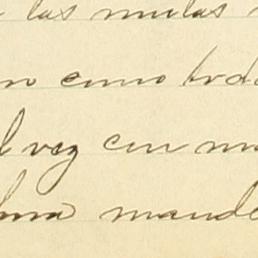 las mulas
como tod
vez con m
mande